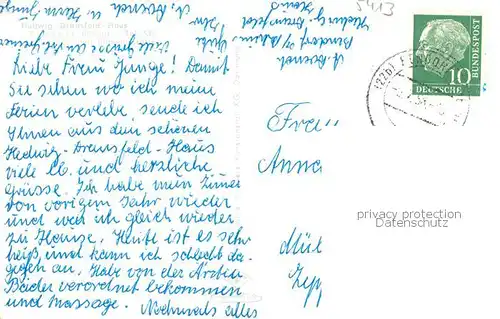 Liebe Frau Junge! Damit
Sie sehen wo ich meine
Ferien verlebe, sende ich
Ihnen aus dem schönen
Hedwig-Dransfeld-Haus
viele lb. und herzliche
Grüsse. Ich habe mein Zimmer
von vorigem Jahr wieder
und war ich gleich wieder
zu Hause. Heute ist es sehr
heiß, und kann ich schlecht da-
gegen an. Habe von der Ärztin
Bäder verordnet bekommen
und Massage. Nochmals alles
Gute Ihre
A. Boersch
Bendorf a/Rhein
Hedwig Dransfeld
Haus
5413
Frau
Anna
Mül
Zepp
10
DEUTSCHE
BUNDESPOST
privacy protection
Datenschutz